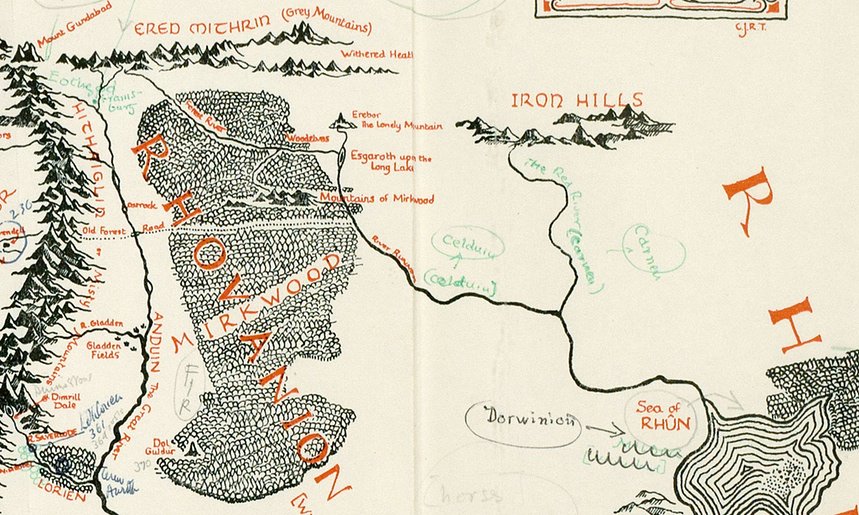 Mount Gundabad
ERED MITHRIN (Grey Mountains)
Withered Heath
C.J.R.T.
IRON HILLS
Framsburg
HITHAEGLIR
or Misty Mountains
Forest River
Woodelves
Erebor
The Lonely Mountain
Esgaroth upon the
Long Lake
Mountains of Mirkwood
Carrock
Old Forest Road
River Running
Celduin
(Celduin)
The Red River (Carnen)
Carnen
RHOVANION
MIRKWOOD
RH
R. Gladden
Gladden
Fields
ANDUIN The Great River
FIR
Dimrill
Dale
R. SILVERLODE
Lothlorien
361
LORIEN
Dol
Guldur
370
Dorwinion
Sea of
RHÛN